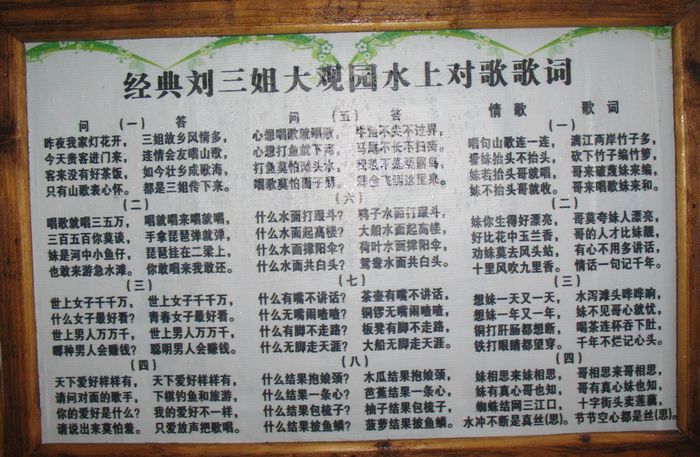 经典刘三姐大观园水上对歌歌词
问 (一) 答
昨夜我家灯花开， 三姐故乡风情多，
今天贵客进门来， 连情会友唱山歌，
客来没有好茶饭， 如今壮乡成歌海，
只有山歌表心怀。 都是三姐传下来。
(二)
唱歌就唱三五万， 唱就唱来唱就唱，
三百五百你莫谈， 手拿琵琶弹就弹，
妹是河中小鱼仔， 琵琶挂在二梁上，
也敢来游急水滩。 你敢唱来我敢还。
(三)
世上女子千千万， 世上女子千千万，
什么女子最好看？ 青春女子最好看。
世上男人万万千， 世上男人万万千，
哪种男人会赚钱？ 聪明男人会赚钱。
(四)
天下爱好样样有， 天下爱好样样有，
请问对面的歌手， 下棋钓鱼和旅游，
你的爱好是什么？ 我的爱好不一样，
请说出来莫怕羞。 只爱放声把歌唱。
问 (五) 答
心想唱歌就唱歌， 牛角不尖不过界，
心想打鱼就下河， 马尾不长不扫街，
打鱼莫怕滩头水，
唱歌莫怕面子薄。 里来。
(六)
什么水面打跟斗？ 鸭子水面打跟斗，
什么水面起高楼？ 大船水面起高楼，
什么水面撑阳伞？ 荷叶水面撑阳伞，
什么水面共白头？ 鸳鸯水面共白头。
(七)
什么有嘴不讲话？ 茶壶有嘴不讲话，
什么无嘴闹喳喳？ 铜锣无嘴闹喳喳，
什么有脚不走路？ 板凳有脚不走路，
什么无脚走天涯？ 大船无脚走天涯。
(八)
什么结果抱娘颈？ 木瓜结果抱娘颈，
什么结果一条心？ 芭蕉结果一条心，
什么结果包梳子？ 柚子结果包梳子，
什么结果披鱼鳞？ 菠萝结果披鱼鳞。
情歌 歌词
(一)
唱句山歌连一连， 漓江两岸竹子多，
看妹抬头不抬头， 砍下竹子编竹箩，
妹若抬头哥就唱， 哥来破篾妹来编，
妹不抬头哥就收。 哥来唱歌妹来和。
(二)
妹你生得好漂亮， 哥莫夸妹人漂亮，
好比花中玉兰香， 哥的人才比妹靓，
劝妹莫去风头站， 有心不用多讲话，
十里风吹九里香。 情话一句记千年。
(三)
想妹一天又一天， 水泻滩头哗哗响，
想妹一年又一年， 妹不见哥心就忧，
铜打肝肠都想断， 喝茶连杯吞下肚，
铁打眼睛都望穿。 千年不烂记心头。
(四)
妹相思来妹相思， 哥相思来哥相思，
妹有真心哥也知， 哥有真心妹也知，
蜘蛛结网三江口， 十字街头卖莲藕，
水冲不断是真丝(思)。 节节空心都是丝(思)。